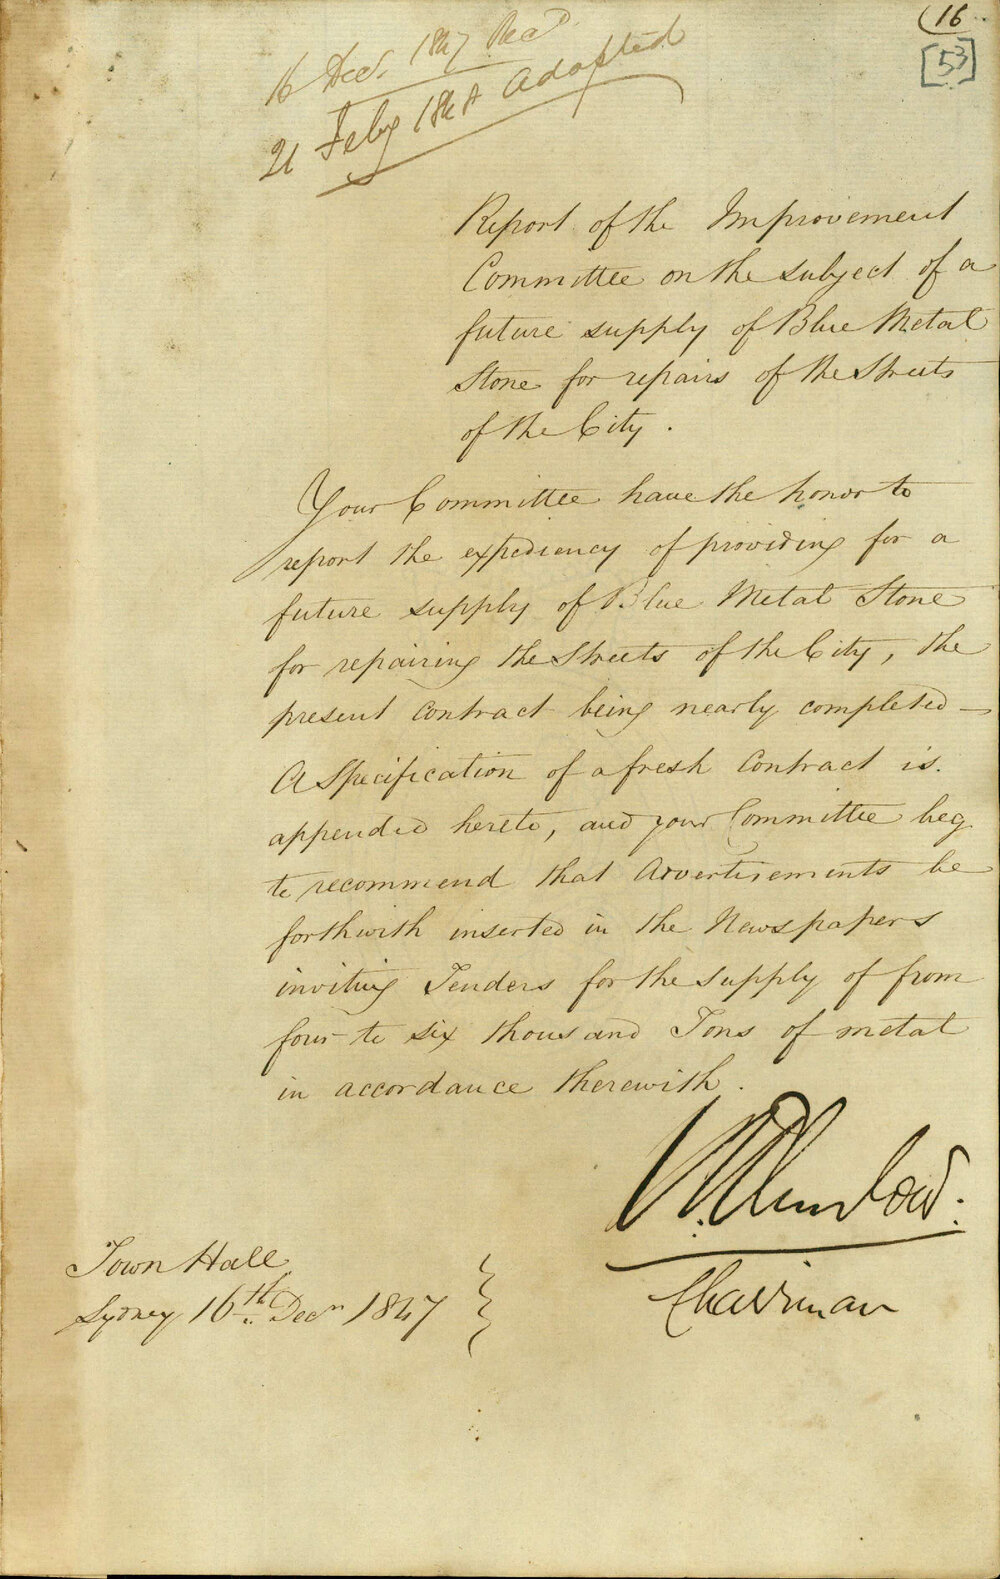 (16
[53]
16 Decr. 1847 Recd
21 Feby 1848 Adopted
Report of the Improvement
Committee on the subject of a
future supply of Blue Metal
Stone for repairs of the Streets
of the City.
Your Committee have the honor to
report the expediency of providing for a
future supply of Blue Metal Stone
for repairing the Streets of the City, the
present Contract being nearly completed —
A Specification of a fresh Contract is
appended hereto, and your Committee beg
to recommend that Advertisements be
forthwith inserted in the Newspapers
inviting Tenders for the supply of from
four to six thousand Tons of metal
in accordance therewith.
Chairman
Town Hall
Sydney 16th Decr 1847